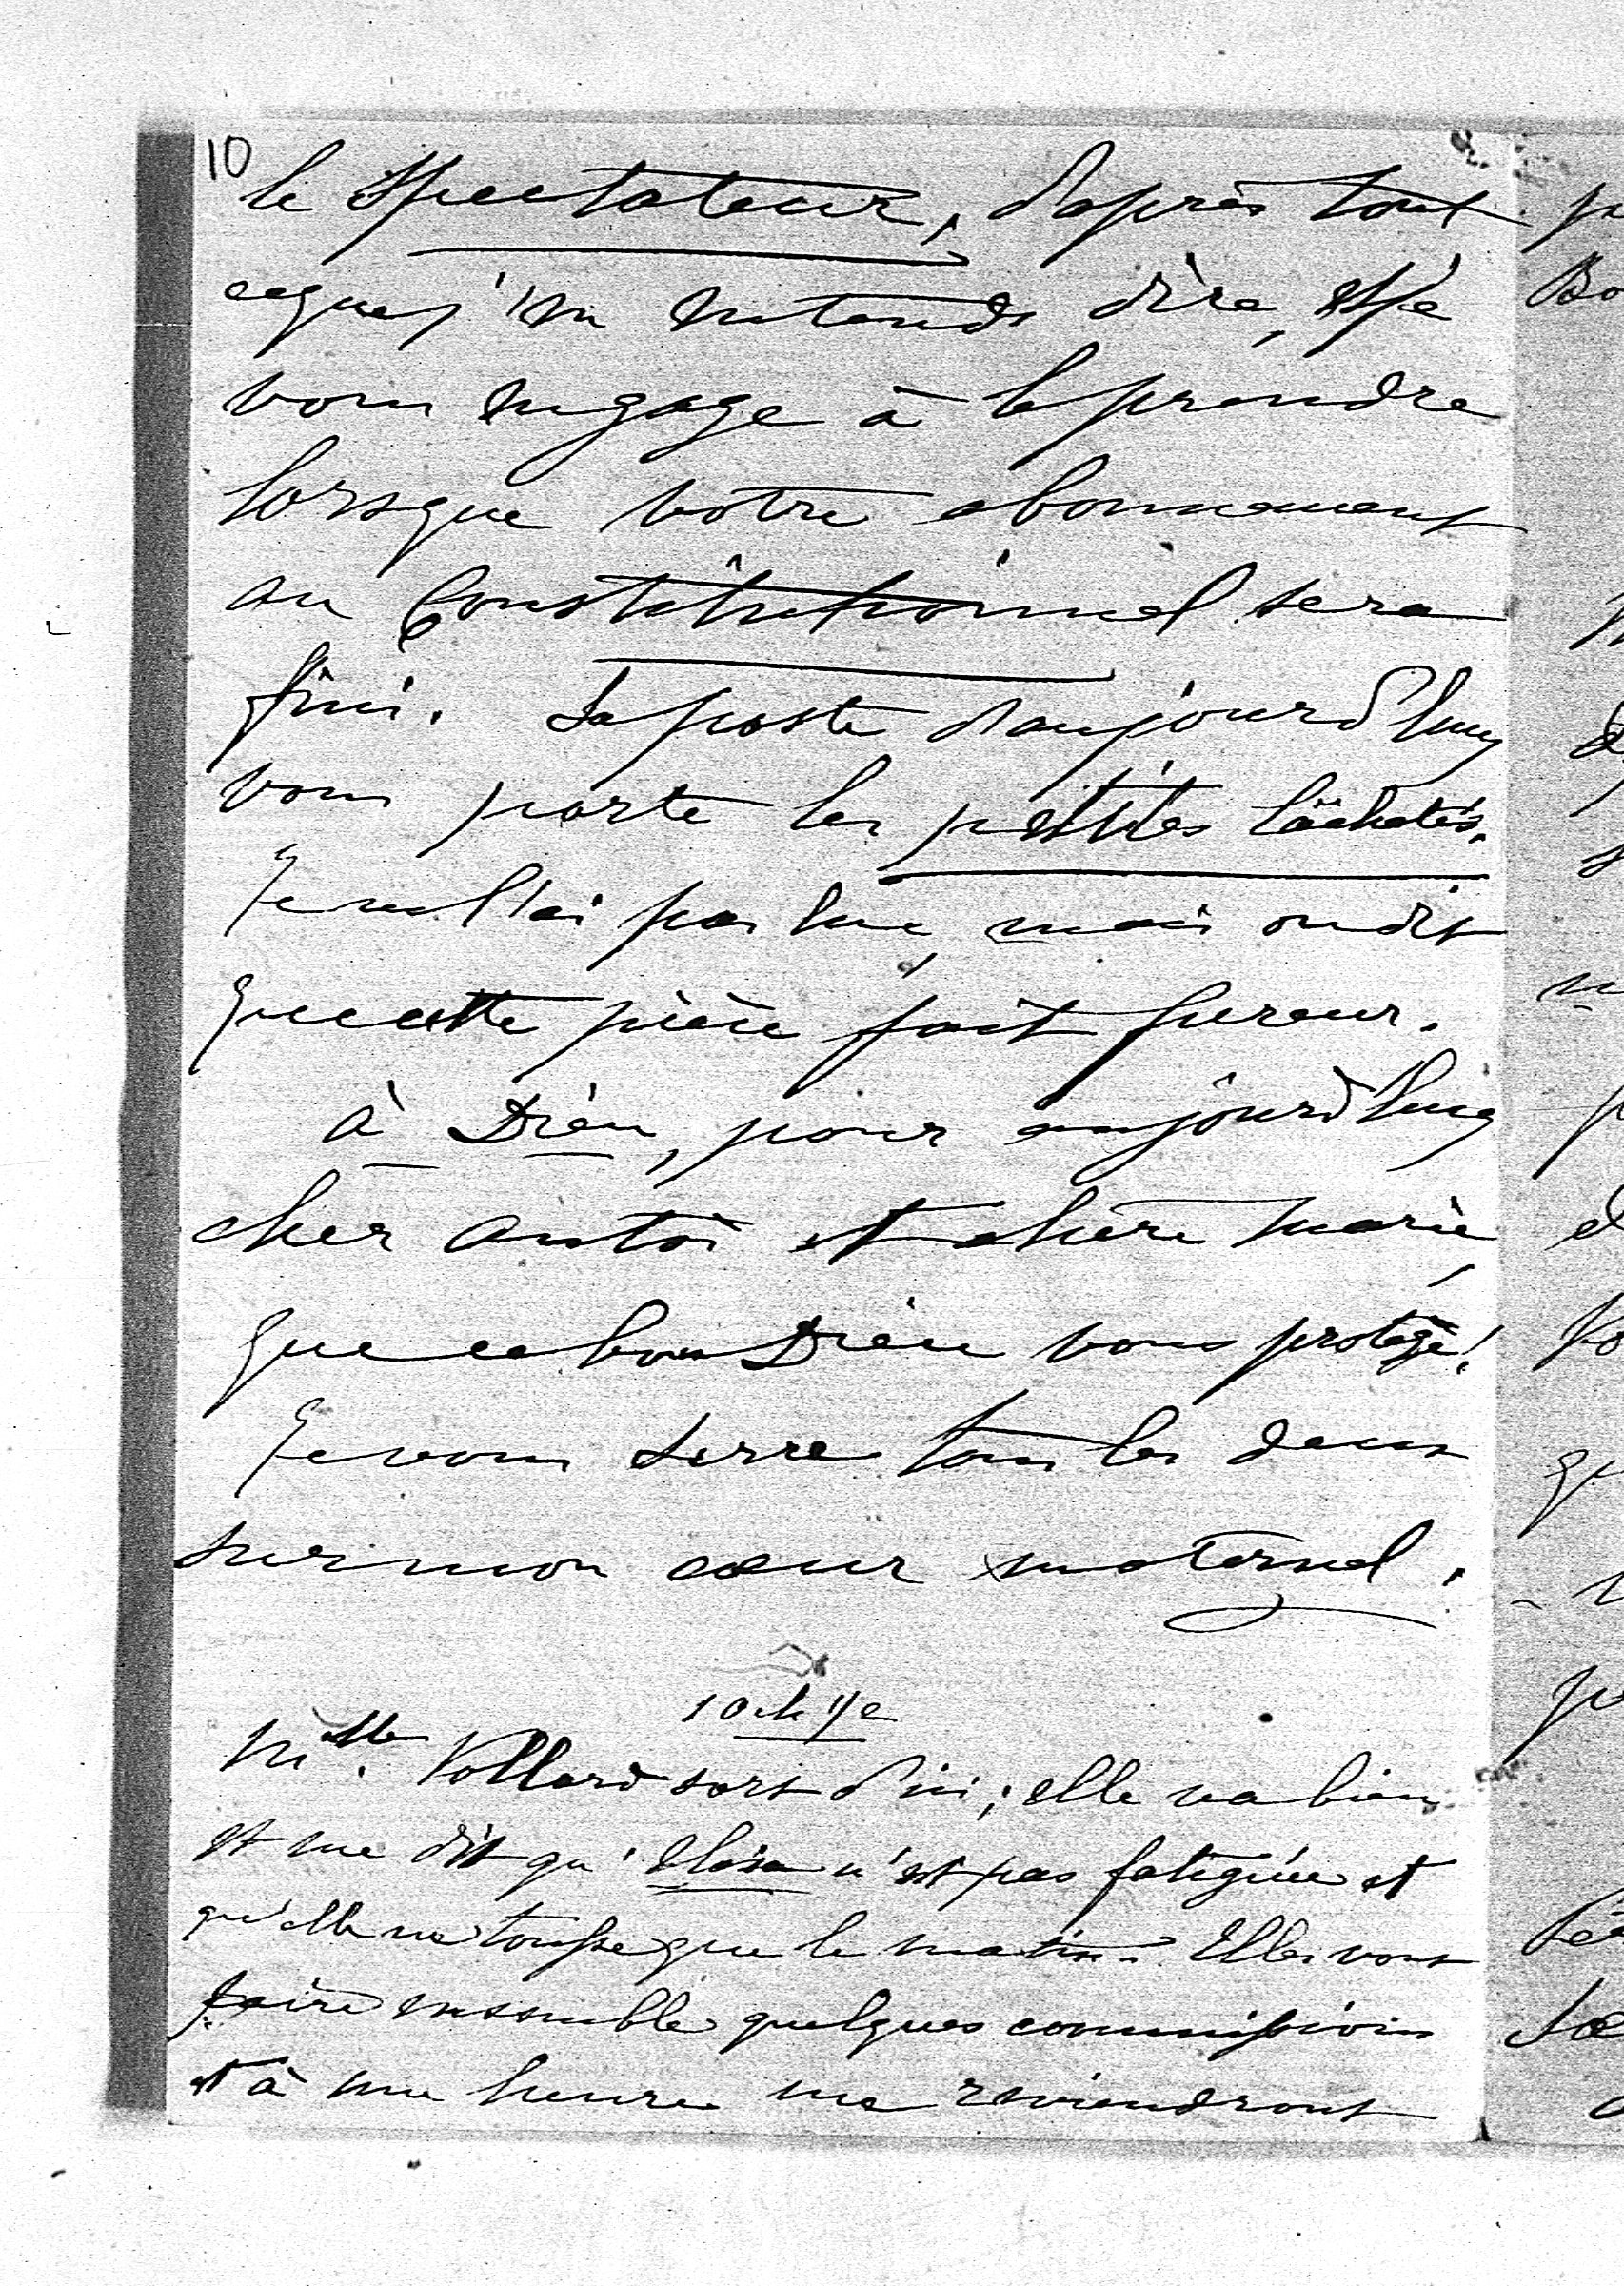 10
le Spectateur, d'après tout
ce que j'en entends dire, et je
vous engage à le prendre
lorsque votre abonnement
au Constitutionnel sera
fini. La poste d'aujourd'huy
vous porte les petites lâchetés.
Je ne l'ai pas lue, mais on dit
que cette pièce fait fureur.
à Dieu, pour aujourd'huy
cher et chère Marie
que ce bon Dieu vous protège!
Je vous serre tous les deux
sur mon cœur maternel.
10 h 1/2
Melle. Vollard sort d'ici; elle va bien
et me dit qu' n'est pas fatiguée et
qu'elle ne tousse que le matin. Elles vont
faire ensemble quelques commissions
et à une heure me reviendront